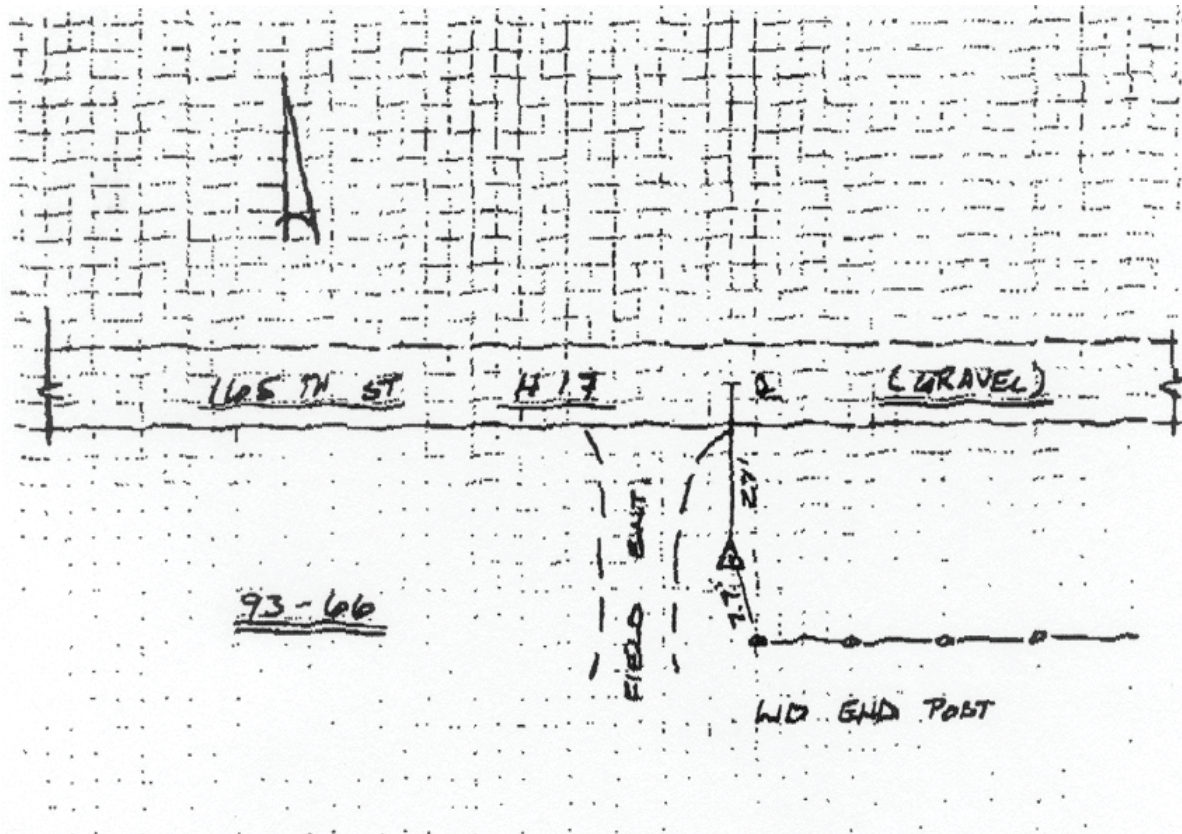 165 TH ST H 17 (GRAVEL)
27'
7.7'
FIELD ENT.
93-66
WD END POST